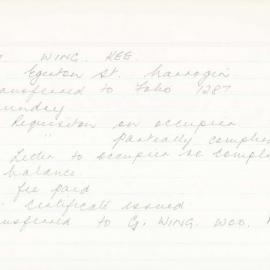 WING KEE
Egerton St.
ansferred to Folio 1287
unday
Requisition on occupier
" partially complie
Letter to occupier re comple
balance.
fee paid
Certificate issued
nsferred to G. WING. WOO.